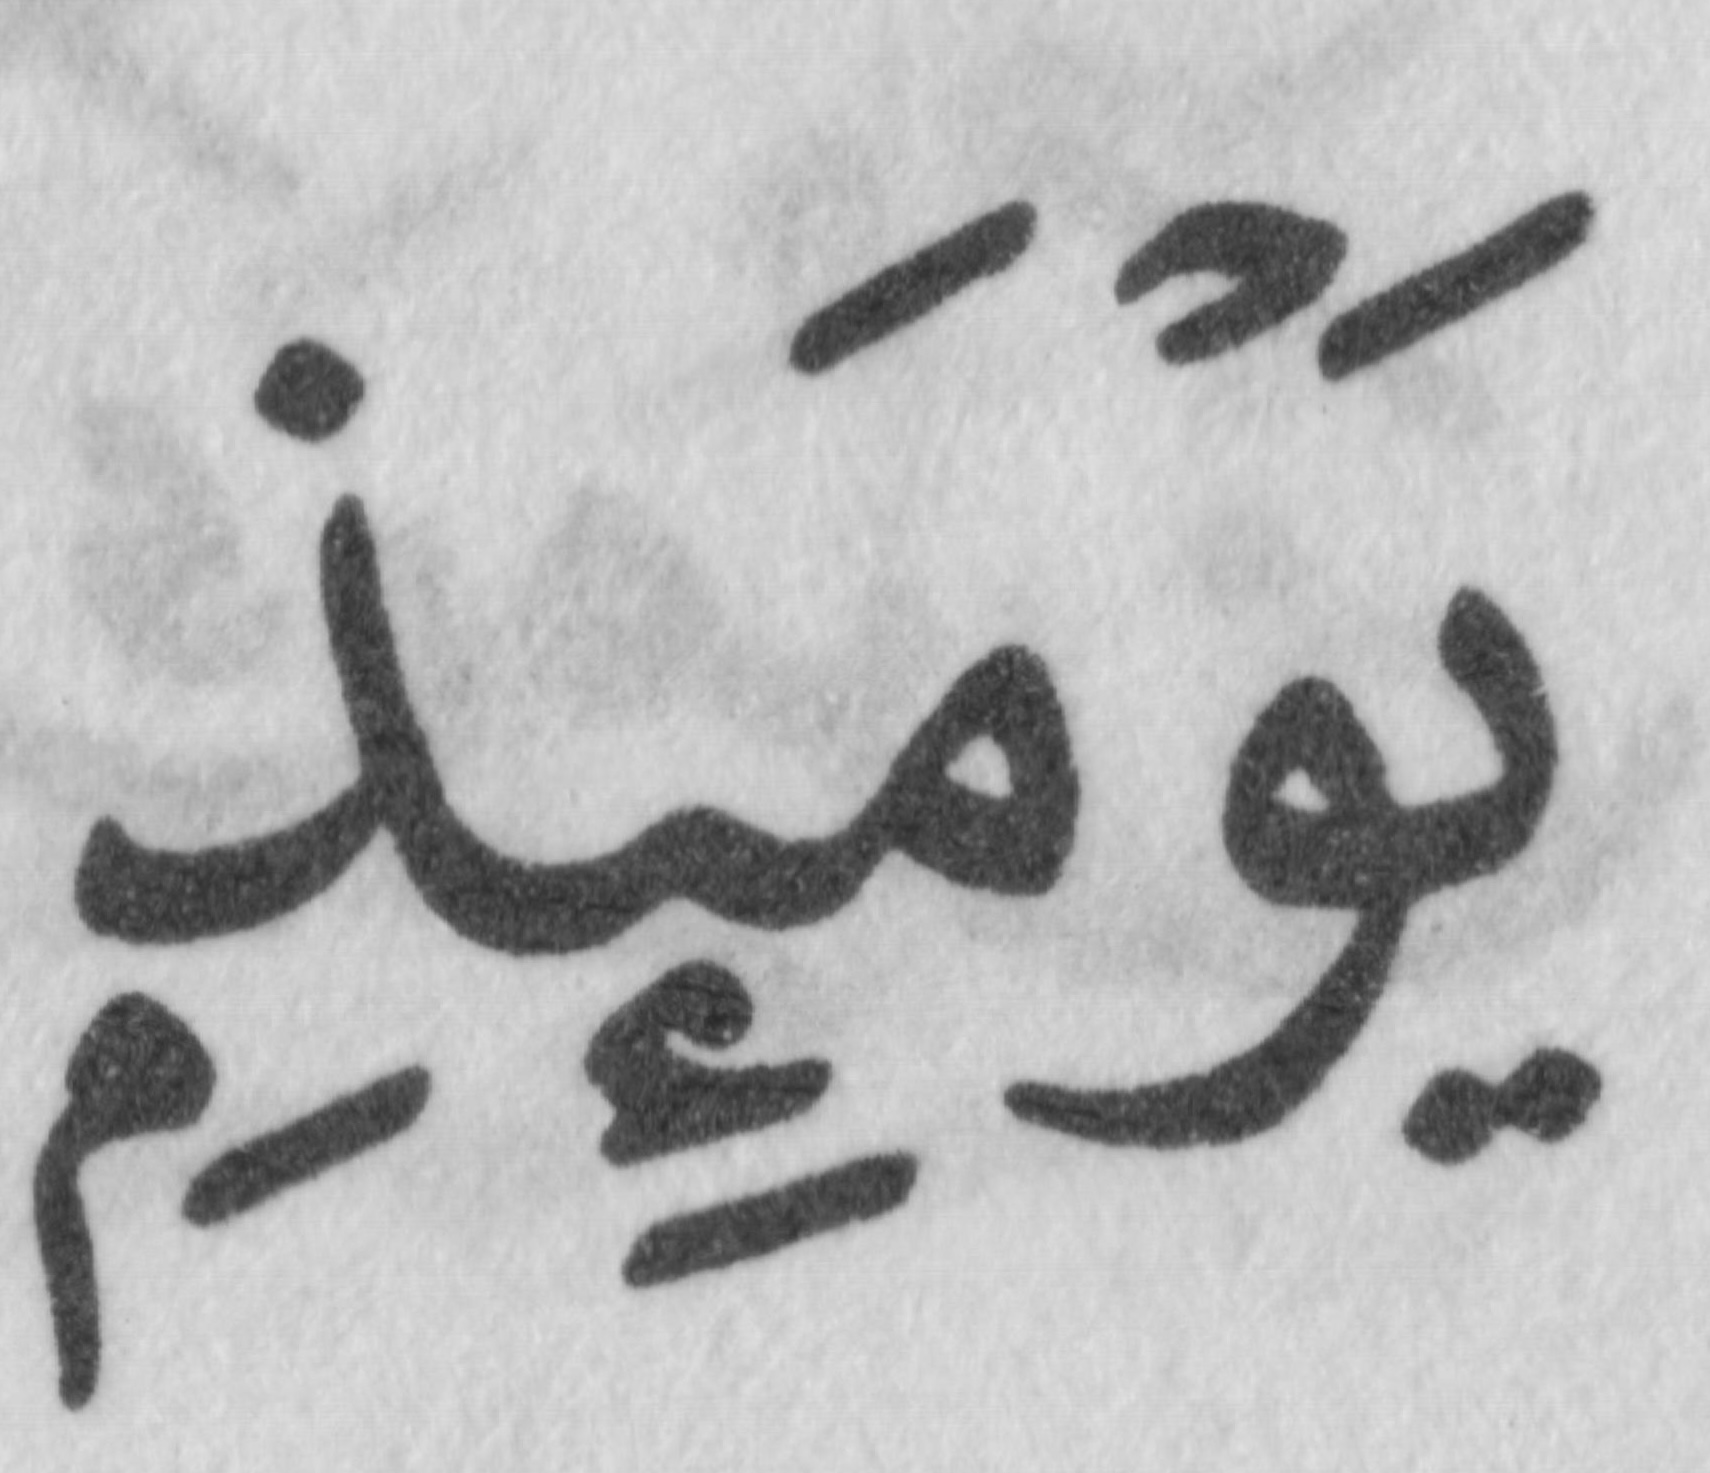 يَوْمَئِذِۭ